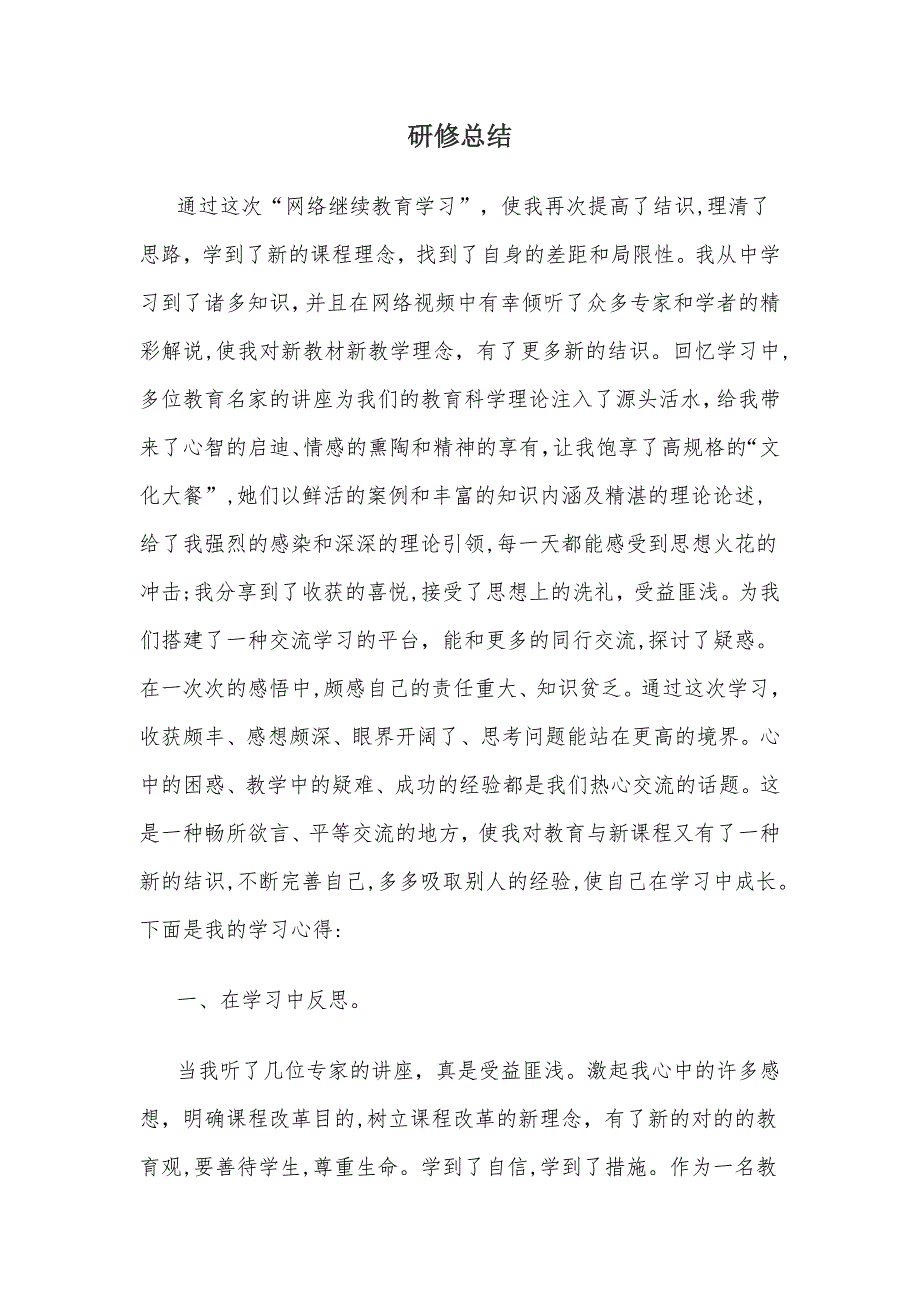 研修总结
通过这次“网络继续教育学习”，使我再次提高了结识,理清了
思路，学到了新的课程理念，找到了自身的差距和局限性。我从中学
习到了诸多知识,并且在网络视频中有幸倾听了众多专家和学者的精
彩解说,使我对新教材新教学理念，有了更多新的结识。回忆学习中,
多位教育名家的讲座为我们的教育科学理论注入了源头活水,给我带
来了心智的启迪、情感的熏陶和精神的享有,让我饱享了高规格的“文
化大餐”,她们以鲜活的案例和丰富的知识内涵及精湛的理论论述,
给了我强烈的感染和深深的理论引领,每一天都能感受到思想火花的
冲击;我分享到了收获的喜悦,接受了思想上的洗礼，受益匪浅。为我
们搭建了一种交流学习的平台，能和更多的同行交流,探讨了疑惑。
在一次次的感悟中,颇感自己的责任重大、知识贫乏。通过这次学习，
收获颇丰、感想颇深、眼界开阔了、思考问题能站在更高的境界。心
中的困惑、教学中的疑难、成功的经验都是我们热心交流的话题。这
是一种畅所欲言、平等交流的地方，使我对教育与新课程又有了一种
新的结识,不断完善自己,多多吸取别人的经验,使自己在学习中成长。
下面是我的学习心得:
一、在学习中反思。
当我听了几位专家的讲座，真是受益匪浅。激起我心中的许多感
想，明确课程改革目的,树立课程改革的新理念，有了新的对的的教
育观,要善待学生,尊重生命。学到了自信,学到了措施。作为一名教